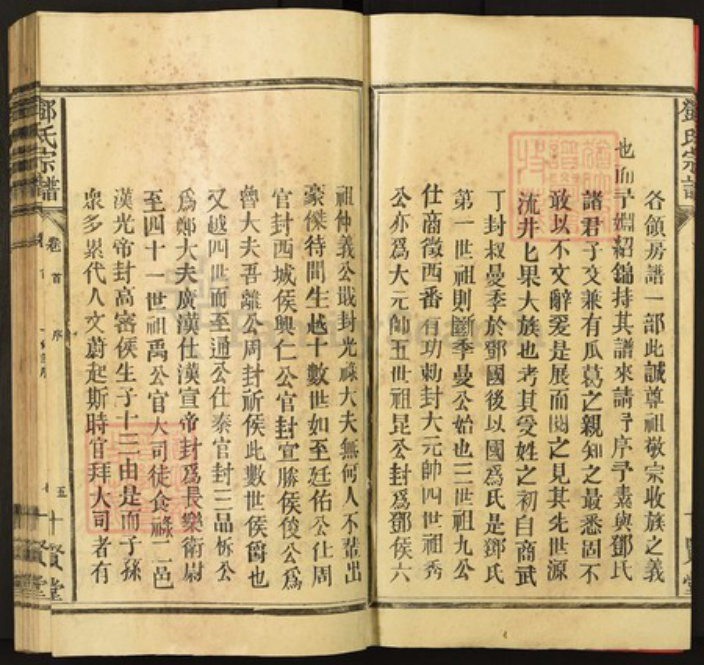 鄧氏宗譜
各領房譜一部此誠尊祖敬宗收族之義
也而子嫺紹錦持其譜來請予序予素與鄧氏
諸君子交兼有瓜葛之親知之最悉固不
敢以不文辭爰是展而閱之見其先世源
流井匕果大族也考其受姓之初自商武
丁封叔曼季於鄧國後以國爲氏是鄧氏
第一世祖則斷季曼公始也三世祖九公
仕商徵西番有功勅封大元帥四世祖秀
公亦爲大元帥五世祖昆公封爲鄧侯六
祖仲義公戢封光祿大夫無何人不輩出
豪傑待間生越十數世如至廷佑公仕周
官封西城侯興仁公官封宣勝侯俊公爲
魯大夫吾離公周封祈侯此數世侯爵也
又越四世而至通公仕泰官封三品析公
爲鄭大夫廣漢仕漢宣帝封爲長樂衛尉
至四十一世祖禹公官大司徒食祿二邑
漢光帝封高密侯生子十三由是而子孫
衆多累代人文蔚起斯時官拜大司者有
鄧氏宗譜
卷首
序
五
十賢堂